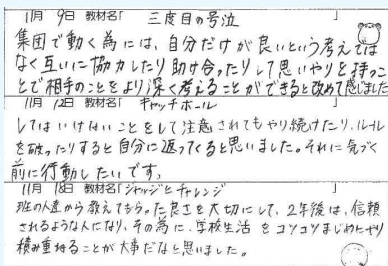 11月 9日 教材名「 三度目の号泣
集団で動く為には、自分だけが良いという考えでは
なく互いに協力したり助け合ったりして思いやりを持つこ
とで相手のことをより深く考えることができると改めて感じました
11月 12日 教材名「 キャッチボール
してはいけないことをして注意されてもやり続けたり、ルール
を破ったりすると自分に返ってくると思いました。それに気づく
前に行動したいです。
11月 18日 教材名「ジャッジとチャレンジ
班の人達から教えてもらった良さを大切にして、2年後は、信頼
されるような人になり、その為に、学校生活をコツコツまじめにやり
積み重ねることが大事だなと思いました。